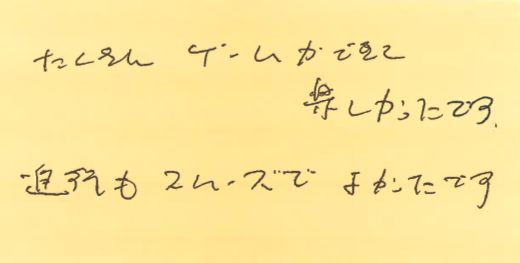 たくさん ゲームができて
楽しかったです.
進行も スムーズで よかったです